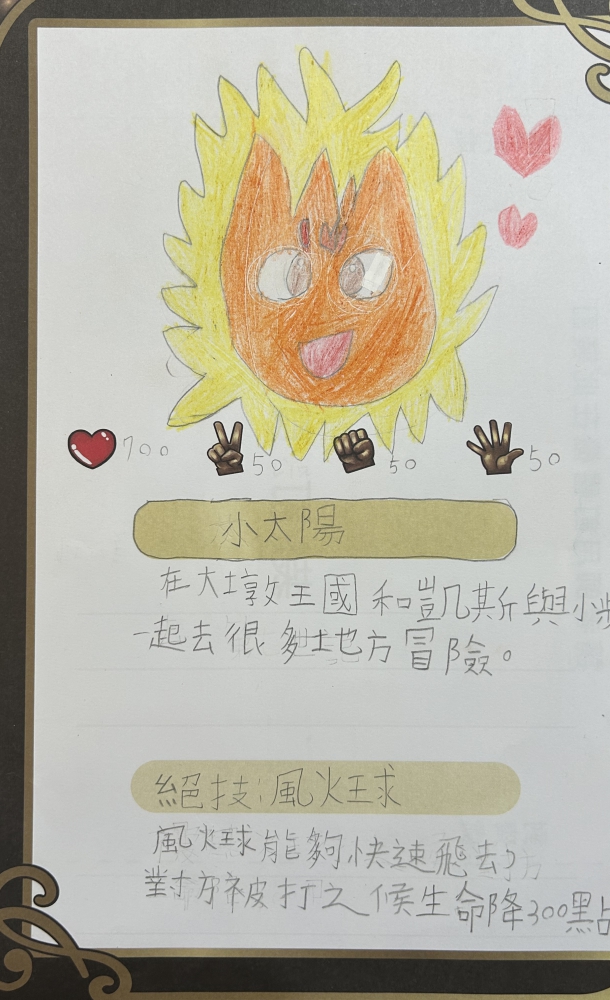 700 50 50 50
小太陽
在大墩王國和豈几斯與小
一起去很多地方冒險。
絕技:風火球
風火球能夠快速飛去
對方被打之候生命降300點